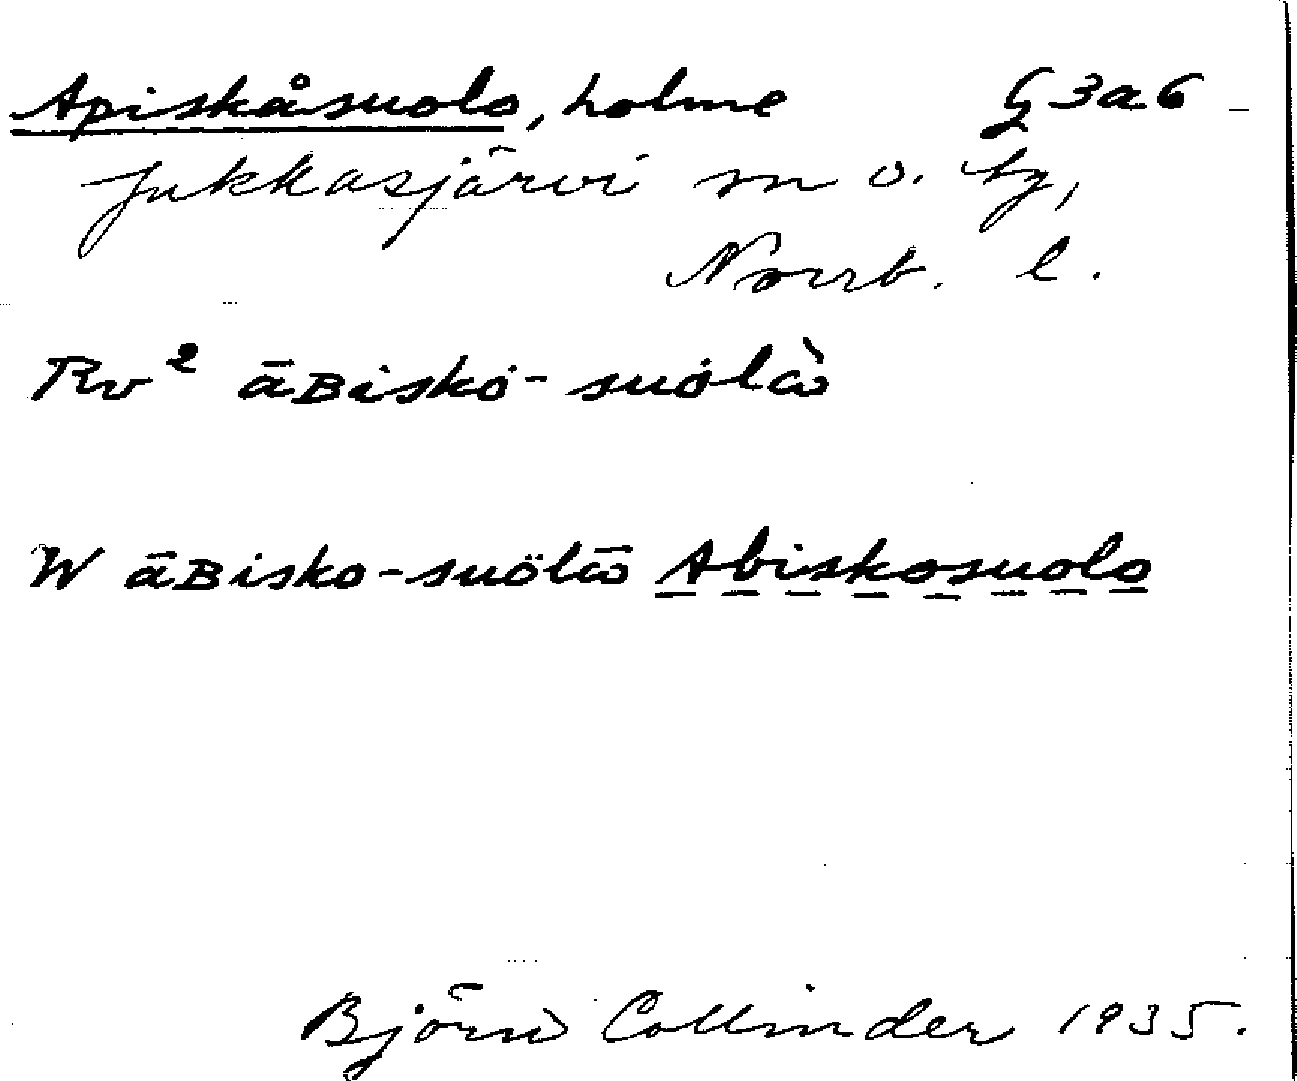 Apiskåsuolo, holme § 3a6
Jukkasjärvi sn o. tg,
Norrb. l.
Rv² āBiskȯ-suȯlὼ
W āBisko-suölω̄ Abiskosuolo
Björn Collinder 1935.